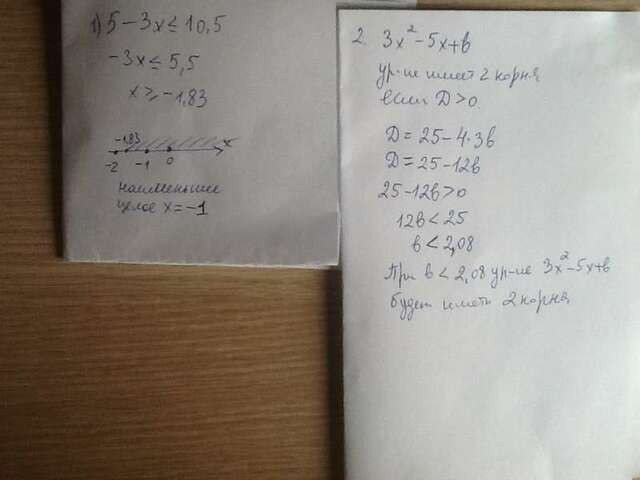 1) 5 - 3x ≤ 10,5
-3x ≤ 5,5
x ≥ -1,83
-1,83 x
-2 -1 0
наименьшее
целое x = -1
2. 3x² - 5x + в
ур-ие имеет 2 корня
если D > 0
D = 25 - 4·3в
D = 25 - 12в
25 - 12в > 0
12в < 25
в < 2,08
При в < 2,08 ур-ие 3x² - 5x + в
будет иметь 2 корня